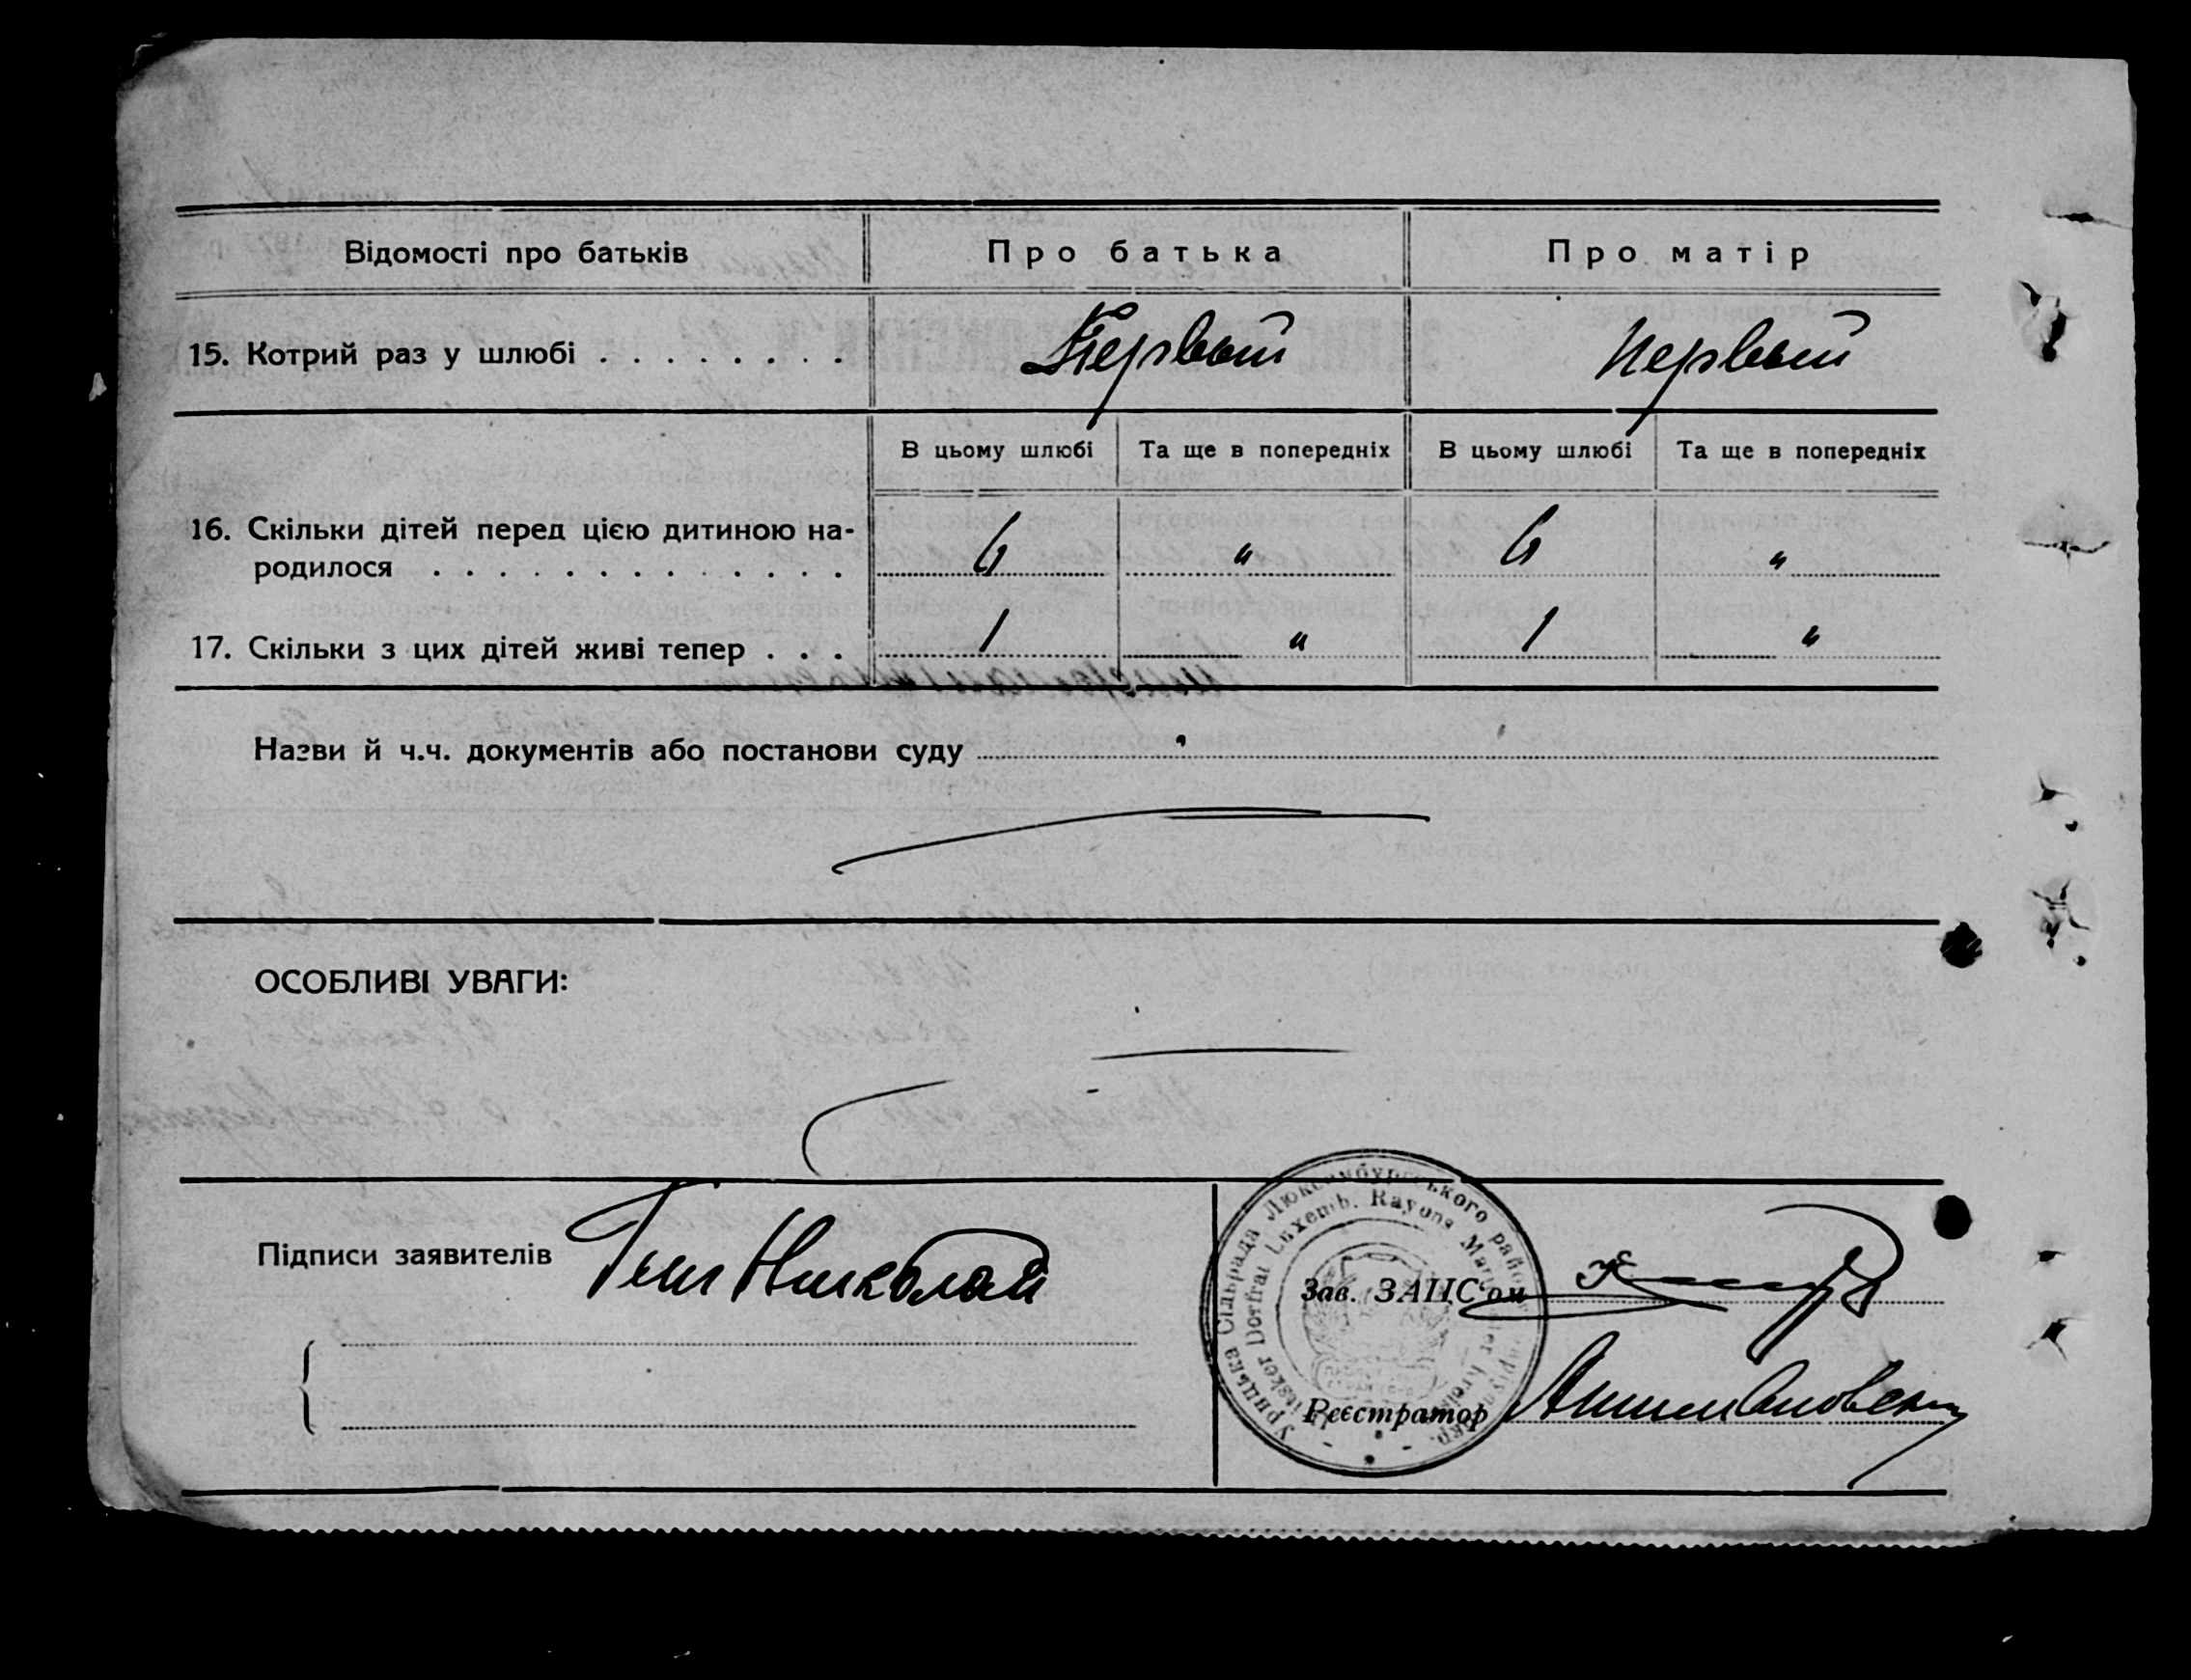 Відомості про батьків Про батька Про матір
15. Котрий раз у шлюбі . . . . . . . . Первый Первый
В цьому шлюбі Та ще в попередніх В цьому шлюбі Та ще в попередніх
16. Скільки дітей перед цією дитиною на-
родилося . . . . . . . . . . . . . 6 " 6 "
17. Скільки з цих дітей живі тепер . . . 1 " 1 "
Назви й ч.ч. документів або постанови суду
ОСОБЛИВІ УВАГИ:
Підписи заявителів Николай
Урицька Сільрада Люксембургського району
Dorfrat Luxemb. Rayons
Зав. ЗАПС'ом
Реєстратор